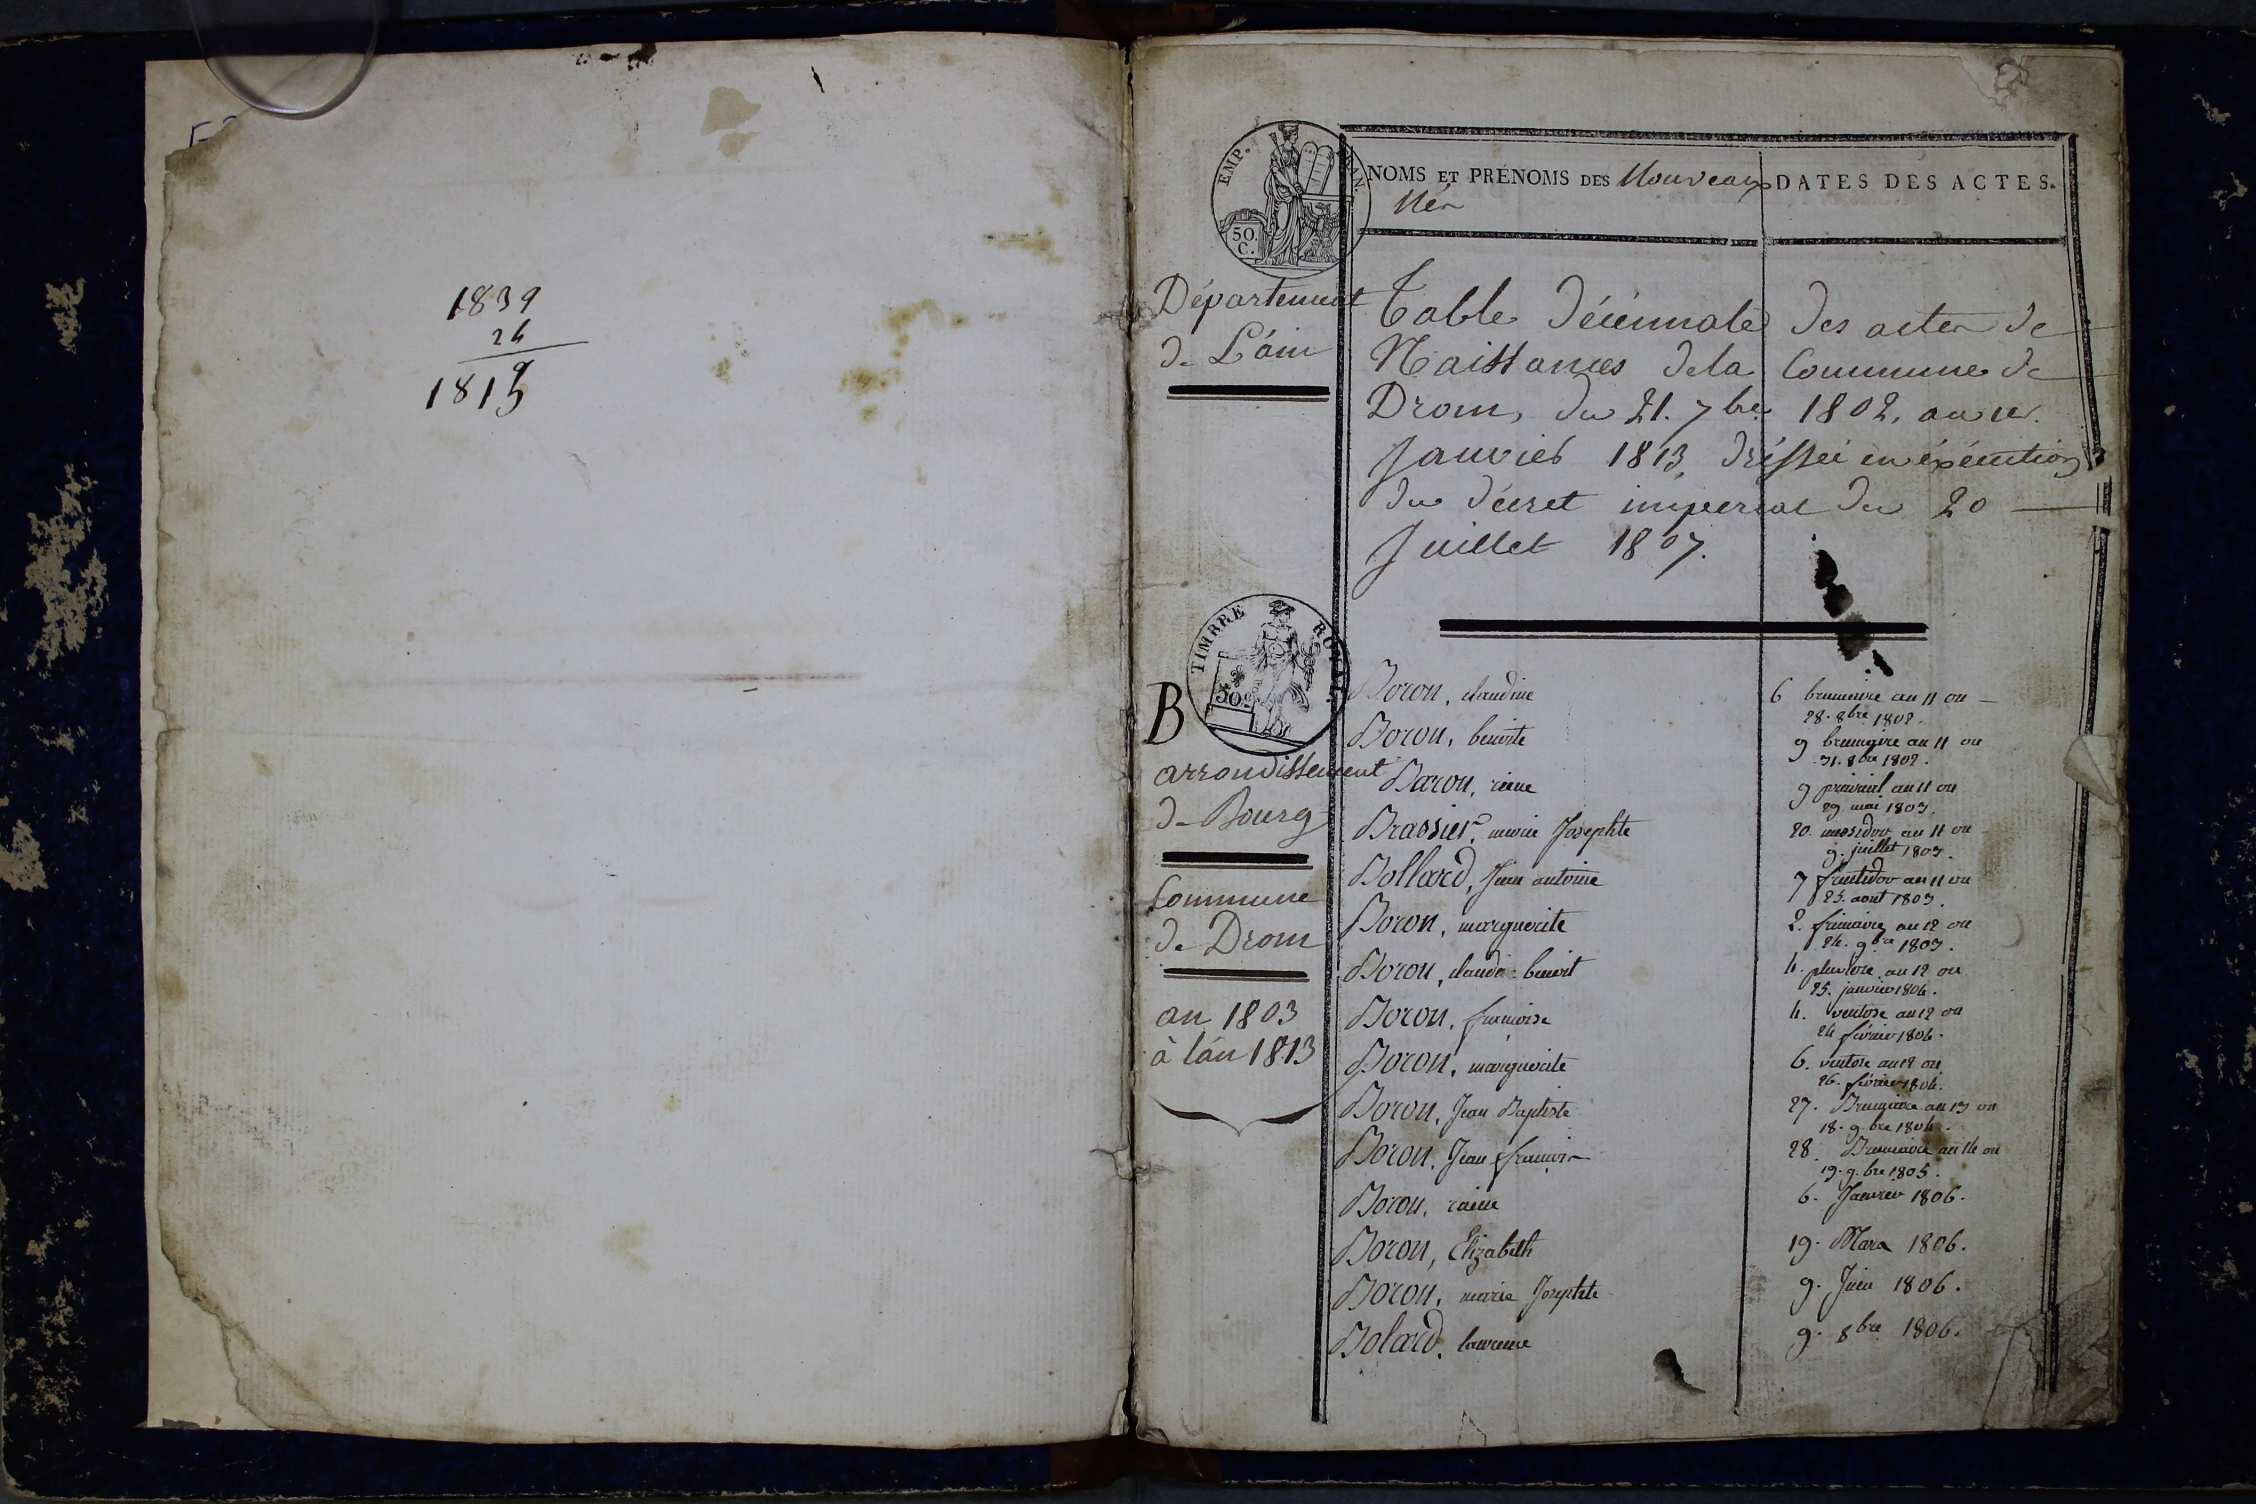 1839
24
1815
EMP. FRAN.
50. C.
NOMS ET PRÉNOMS DES Nouveaux DATES DES ACTES.
Nés
Département
de L'ain
Table décennale des actes de
Naissances de la Commune de
Drom, du 21. 7bre 1802, au 1er.
Janvier 1813, dréssée en éxécution
du décret impérial du 20
Juillet 1807.
TIMBRE ROYAL
50 c
B
arrondissement
de Bourg
Commune
de Drom
an 1803
à l'an 1813
Boron, claudine 6 brumaire an 11 ou
28. 8bre 1802.
Boron, benoite 9 brumaire an 11 ou
31. 8bre 1802.
Baron, reine 9 prairial an 11 ou
29 mai 1803.
Brassier, marie Josephte 20. messidor an 11 ou
9. juillet 1803.
Bollard, Jean antoine 7 fructidor an 11 ou
25. aout 1803.
Boron, marguerite 2. frimaire an 12 ou
24. 9bre 1803.
Boron, claude benoit 4. pluviose an 12 ou
25. janvier 1804.
Boron, francoise 4. ventose an 12 ou
24 février 1804.
Boron, marguerite 6. ventose an 12 ou
26. février 1804.
Boron, Jean Baptiste 27. Brumaire an 13 ou
18. 9bre 1804.
Boron, Jean francois 28 Brumaire an 14 ou
19. 9bre 1805.
Boron, raine 6. Janvier 1806.
Boron, Elizabeth 19. Mars 1806.
Boron, marie Josephte 9. Juin 1806.
Bolard, laurence 9. 8bre 1806.